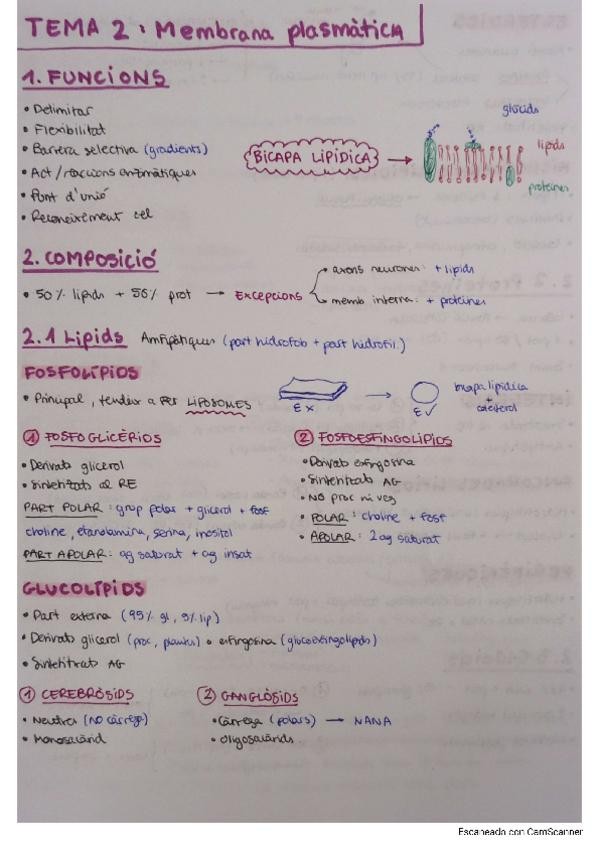 TEMA 2: Membrana plasmàtica
1. FUNCIONS
• Delimitar
• Flexibilitat
• Barrera selectiva (gradients)
• Act/reaccions enzimàtiques
• Punt d'unió
• Reconeixement cel
BICAPA LIPÍDICA
glúcids
lípids
proteïnes
2. COMPOSICIÓ
• 50% lípids + 50% prot → EXCEPCIONS
axons neurones: + lípids
memb interna: + proteïnes
2.1 Lípids Amfipàtiques (part hidrofob + part hidrofil.)
FOSFOLÍPIDS
• Principal, tendeix a fer LIPOSOMES
E x
→
E ✓
bicapa lipídica
+
colesterol
1 FOSFOGLICÈRIDS
• Derivats glicerol
• Sintetitzats al RE
PART POLAR: grup polar + glicerol + fosf
choline, etanolamina, serina, inositol
PART APOLAR: ag saturat + ag insat
2 FOSFOESFINGOLÍPIDS
• Derivats esfingosina
• Sintetitzats AG
• NO proc ni veg
• POLAR: choline + fosf
• APOLAR: 2 ag saturat
GLUCOLÍPIDS
• Part externa (95% gl, 5% lip)
• Derivats glicerol (proc, plantes) o esfingosina (glucoesfingolípids)
• Sintetitzats AG
1 CEREBRÒSIDS
• Neutres (NO càrrega)
• Monosacàrid
2 GANGLÒSIDS
• Càrrega (polars) → NANA
• Oligosacàrids
Escaneado con CamScanner